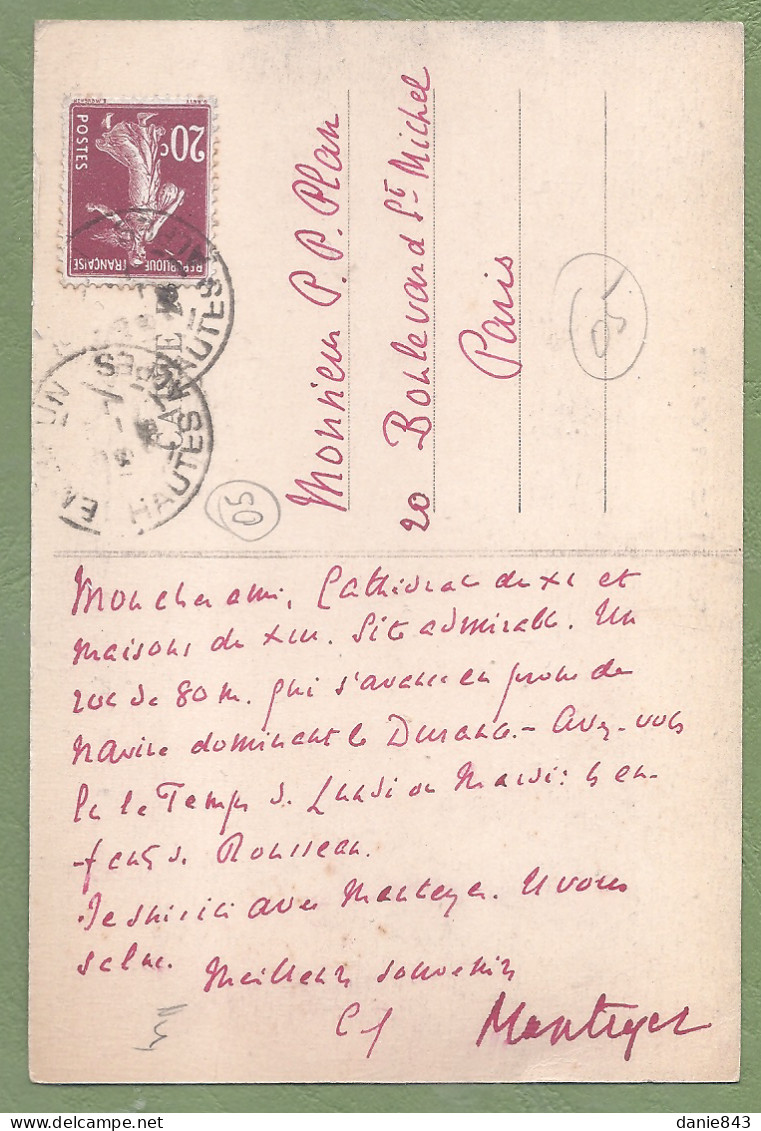 20c
POSTES
REPUBLIQUE FRANÇAISE
HAUTES
HAUTES
Monsieur P. P. Plan
20 Boulevard St Michel
Paris
05
05
Mon cher ami, Cathédrale du XIe et
maisons du XIII. Site admirable. Un
roc de 80 m. qui s'avance en proue de
navire dominant la Durance. - Avez-vous
lu le Temps de Lundi ou Mardi: les en-
fants de Rousseau.
Je suis ici avec Manteyer. Il vous
salue. Meilleurs souvenirs
Manteyer
danie843